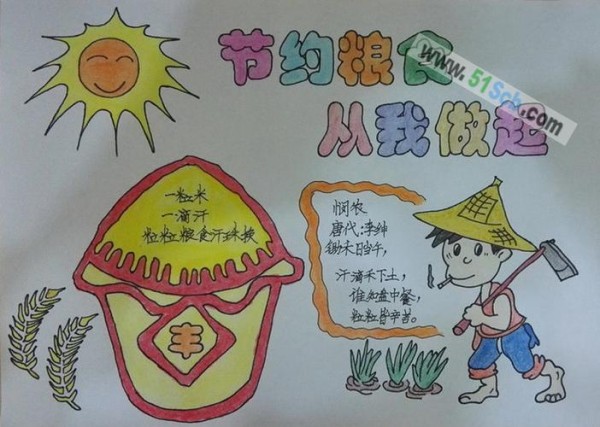 节约粮食
www.51Scb.com
从我做起
一粒米
一滴汗
粒粒粮食汗珠换
悯农
唐代:李绅
锄禾日当午,
汗滴禾下土,
谁知盘中餐,
粒粒皆辛苦。
丰